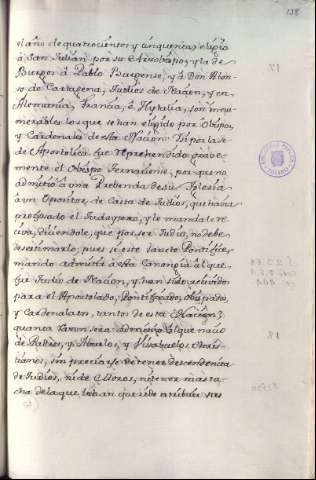 138
el año de quatrocientos y cinquenta, eligio
à San Julian por su Arzobispo; y la de
Burgos à Pablo Burgense, y à Don Alon-
so de Cartagena, Judios de Nacion, y en
Alemania, Francia, è Ytalia, son innu-
merables los que se han elegido por Obispos,
y Cardenales de esta Nacion. Y por la Se-
de Apostolica fue reprehendido grave-
mente el Obispo porque no
admitiò à una Prebenda de su Iglesia
à un Opositor de Casta de Judios, que havia
profesado el Judaysmo, y le manda le re-
civa, diciendole, que por ser Judio, no debe
desestimarlo; pues si este Santo Pontifice,
mandò admitir à esta Canongia al que
fue Judio de Nacion, y han sido
para el Apostolado, Pontificado, Obispado,
y Cardenalato, tantos de esta Nacion;
quanta razon será admitir al que naciò
de Padres, y Abuelos, y Visabuelos Chris-
tianos, sin precisarse de tener descendencia
de Judios, ni de Moros, ni tener mas ta-
cha de la que le dan que